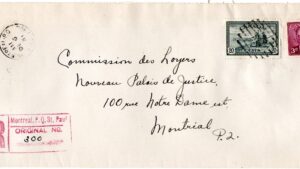 Commission des Loyers
Nouveau Palais de Justice,
100 rue Notre Dame est,
Montrial
P.Q.
Montreal, P.Q. St. Paul
ORIGINAL NO.
300
R